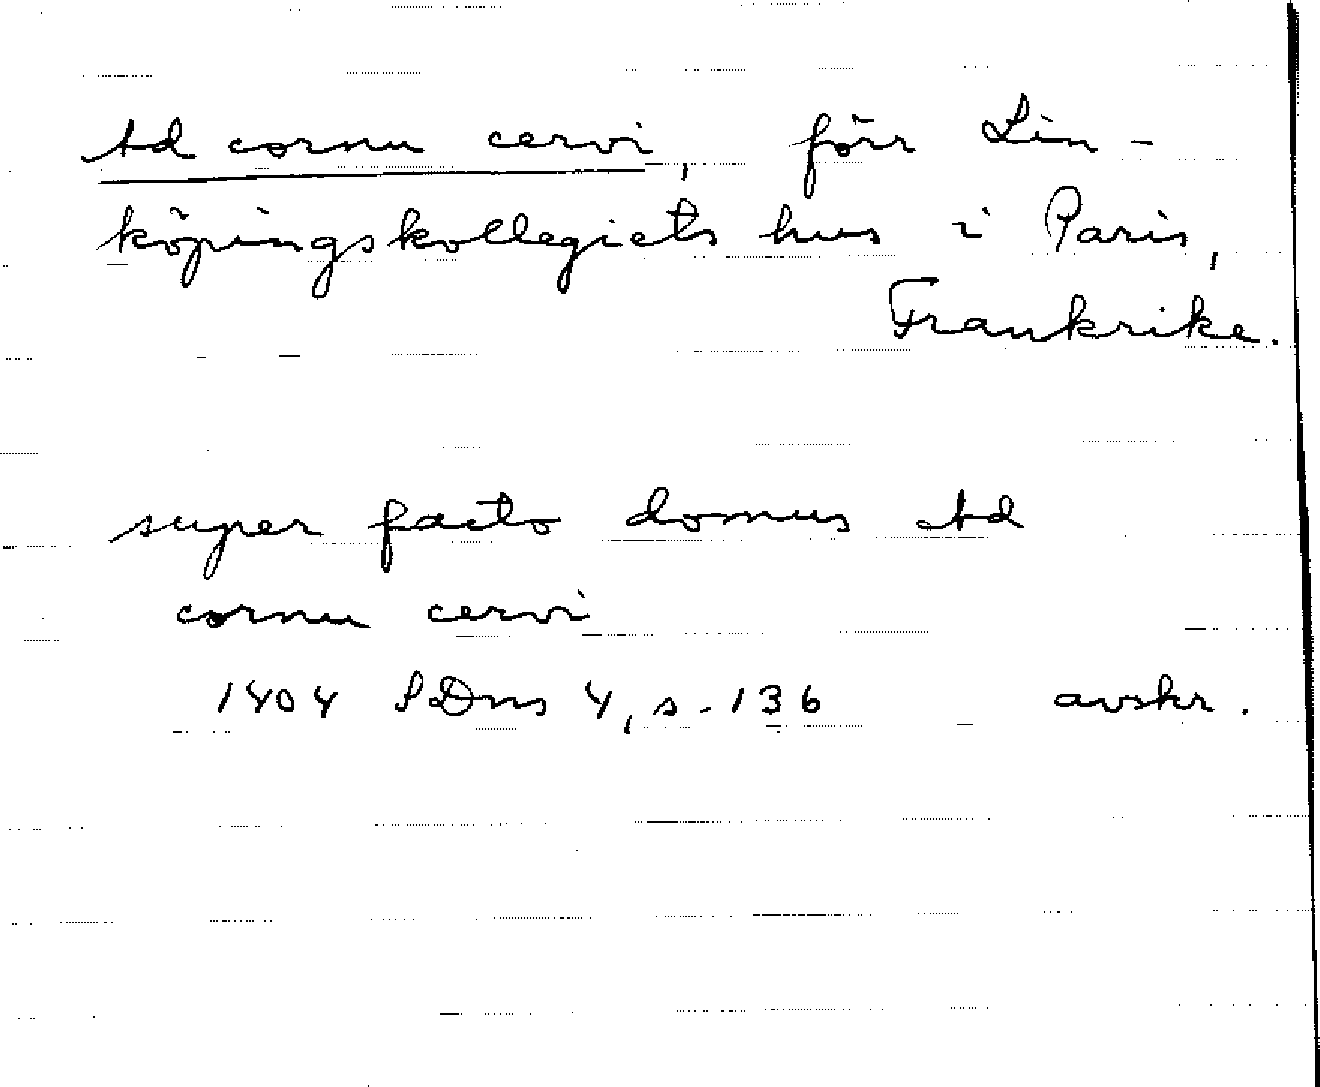 Ad cornu cervi, förr Lin-
köpingskollegiets hus i Paris,
Frankrike.
super facto domus Ad
cornu cervi
1404 SDns 4, s. 136 avskr.